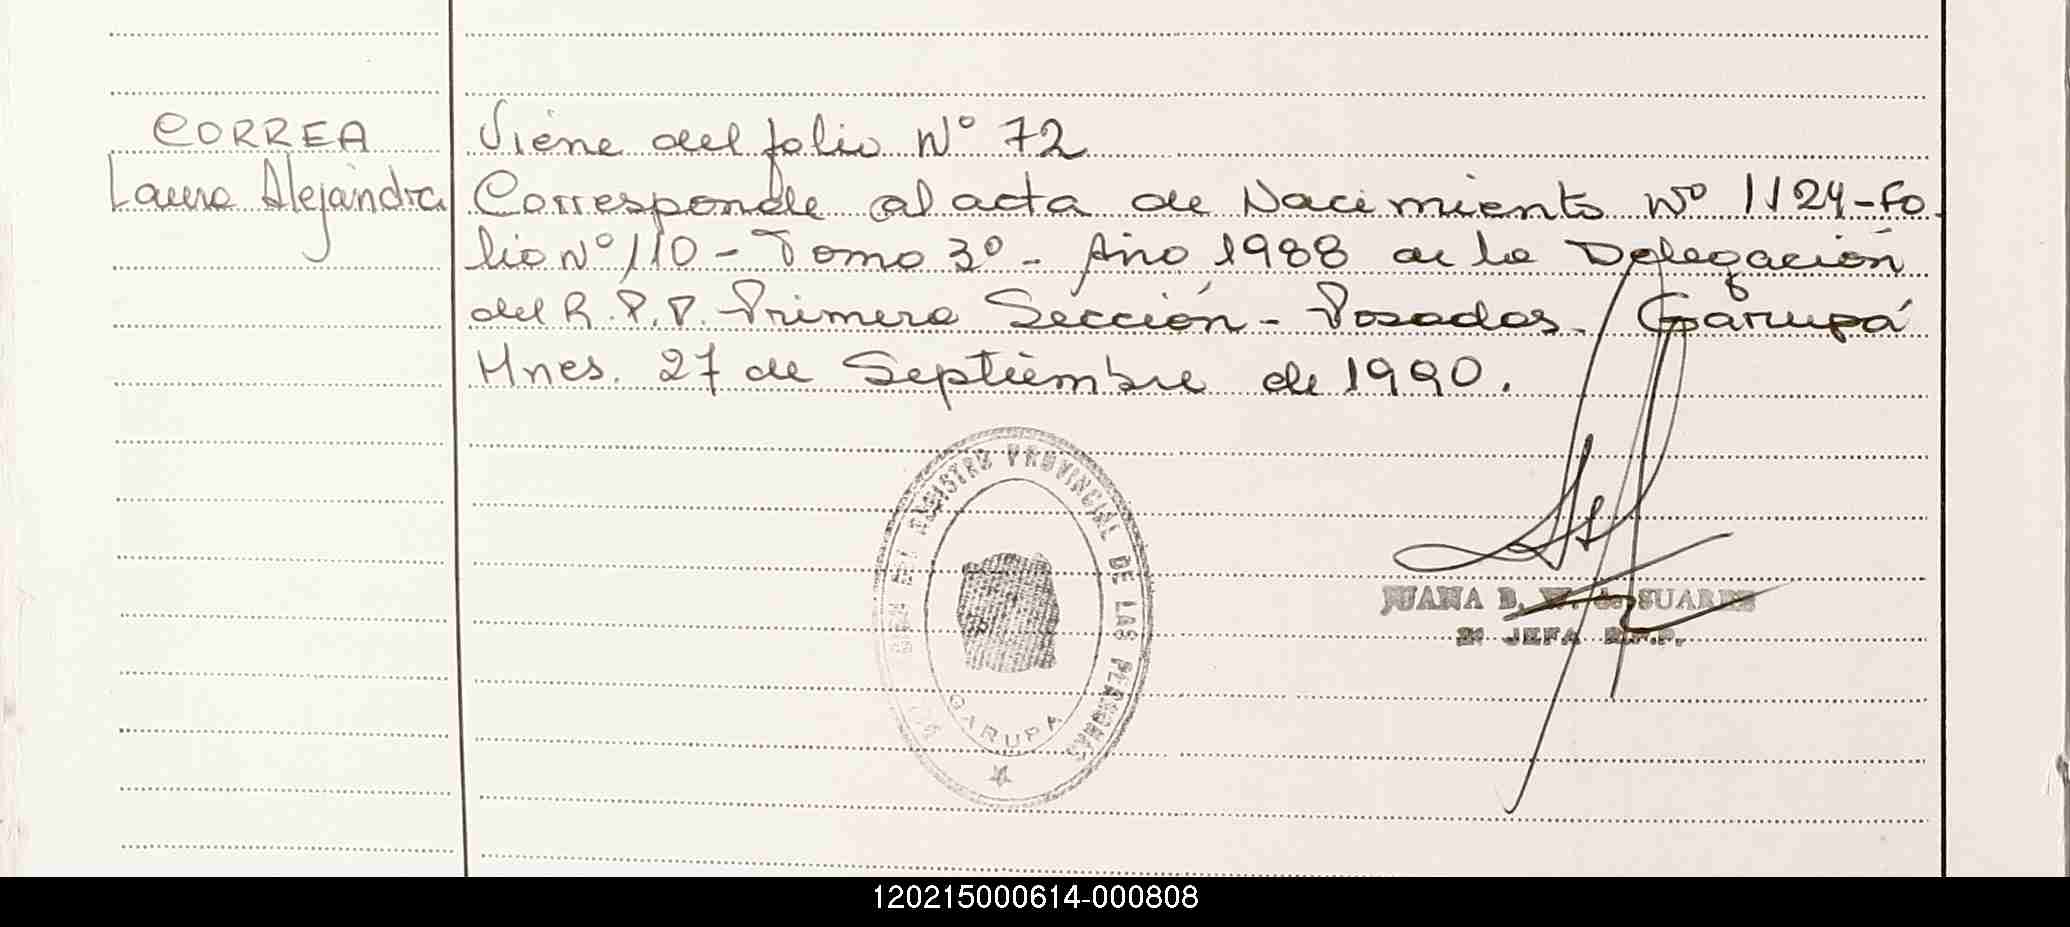 CORREA
Laura Alejandra
Viene del folio Nº 72
Corresponde al acta de Nacimiento Nº 1124-Fo
lio Nº 110 - Tomo 3º - Año 1988 de la Delegación
del R.P.P. Primera Sección - Posadas. Garupá
Mnes. 27 de Septiembre de 1990.
REGISTRO PROVINCIAL DE LAS PERSONAS
GARUPA
JUANA B. W. de SUAREZ
2º JEFA R.P.P.
120215000614-000808